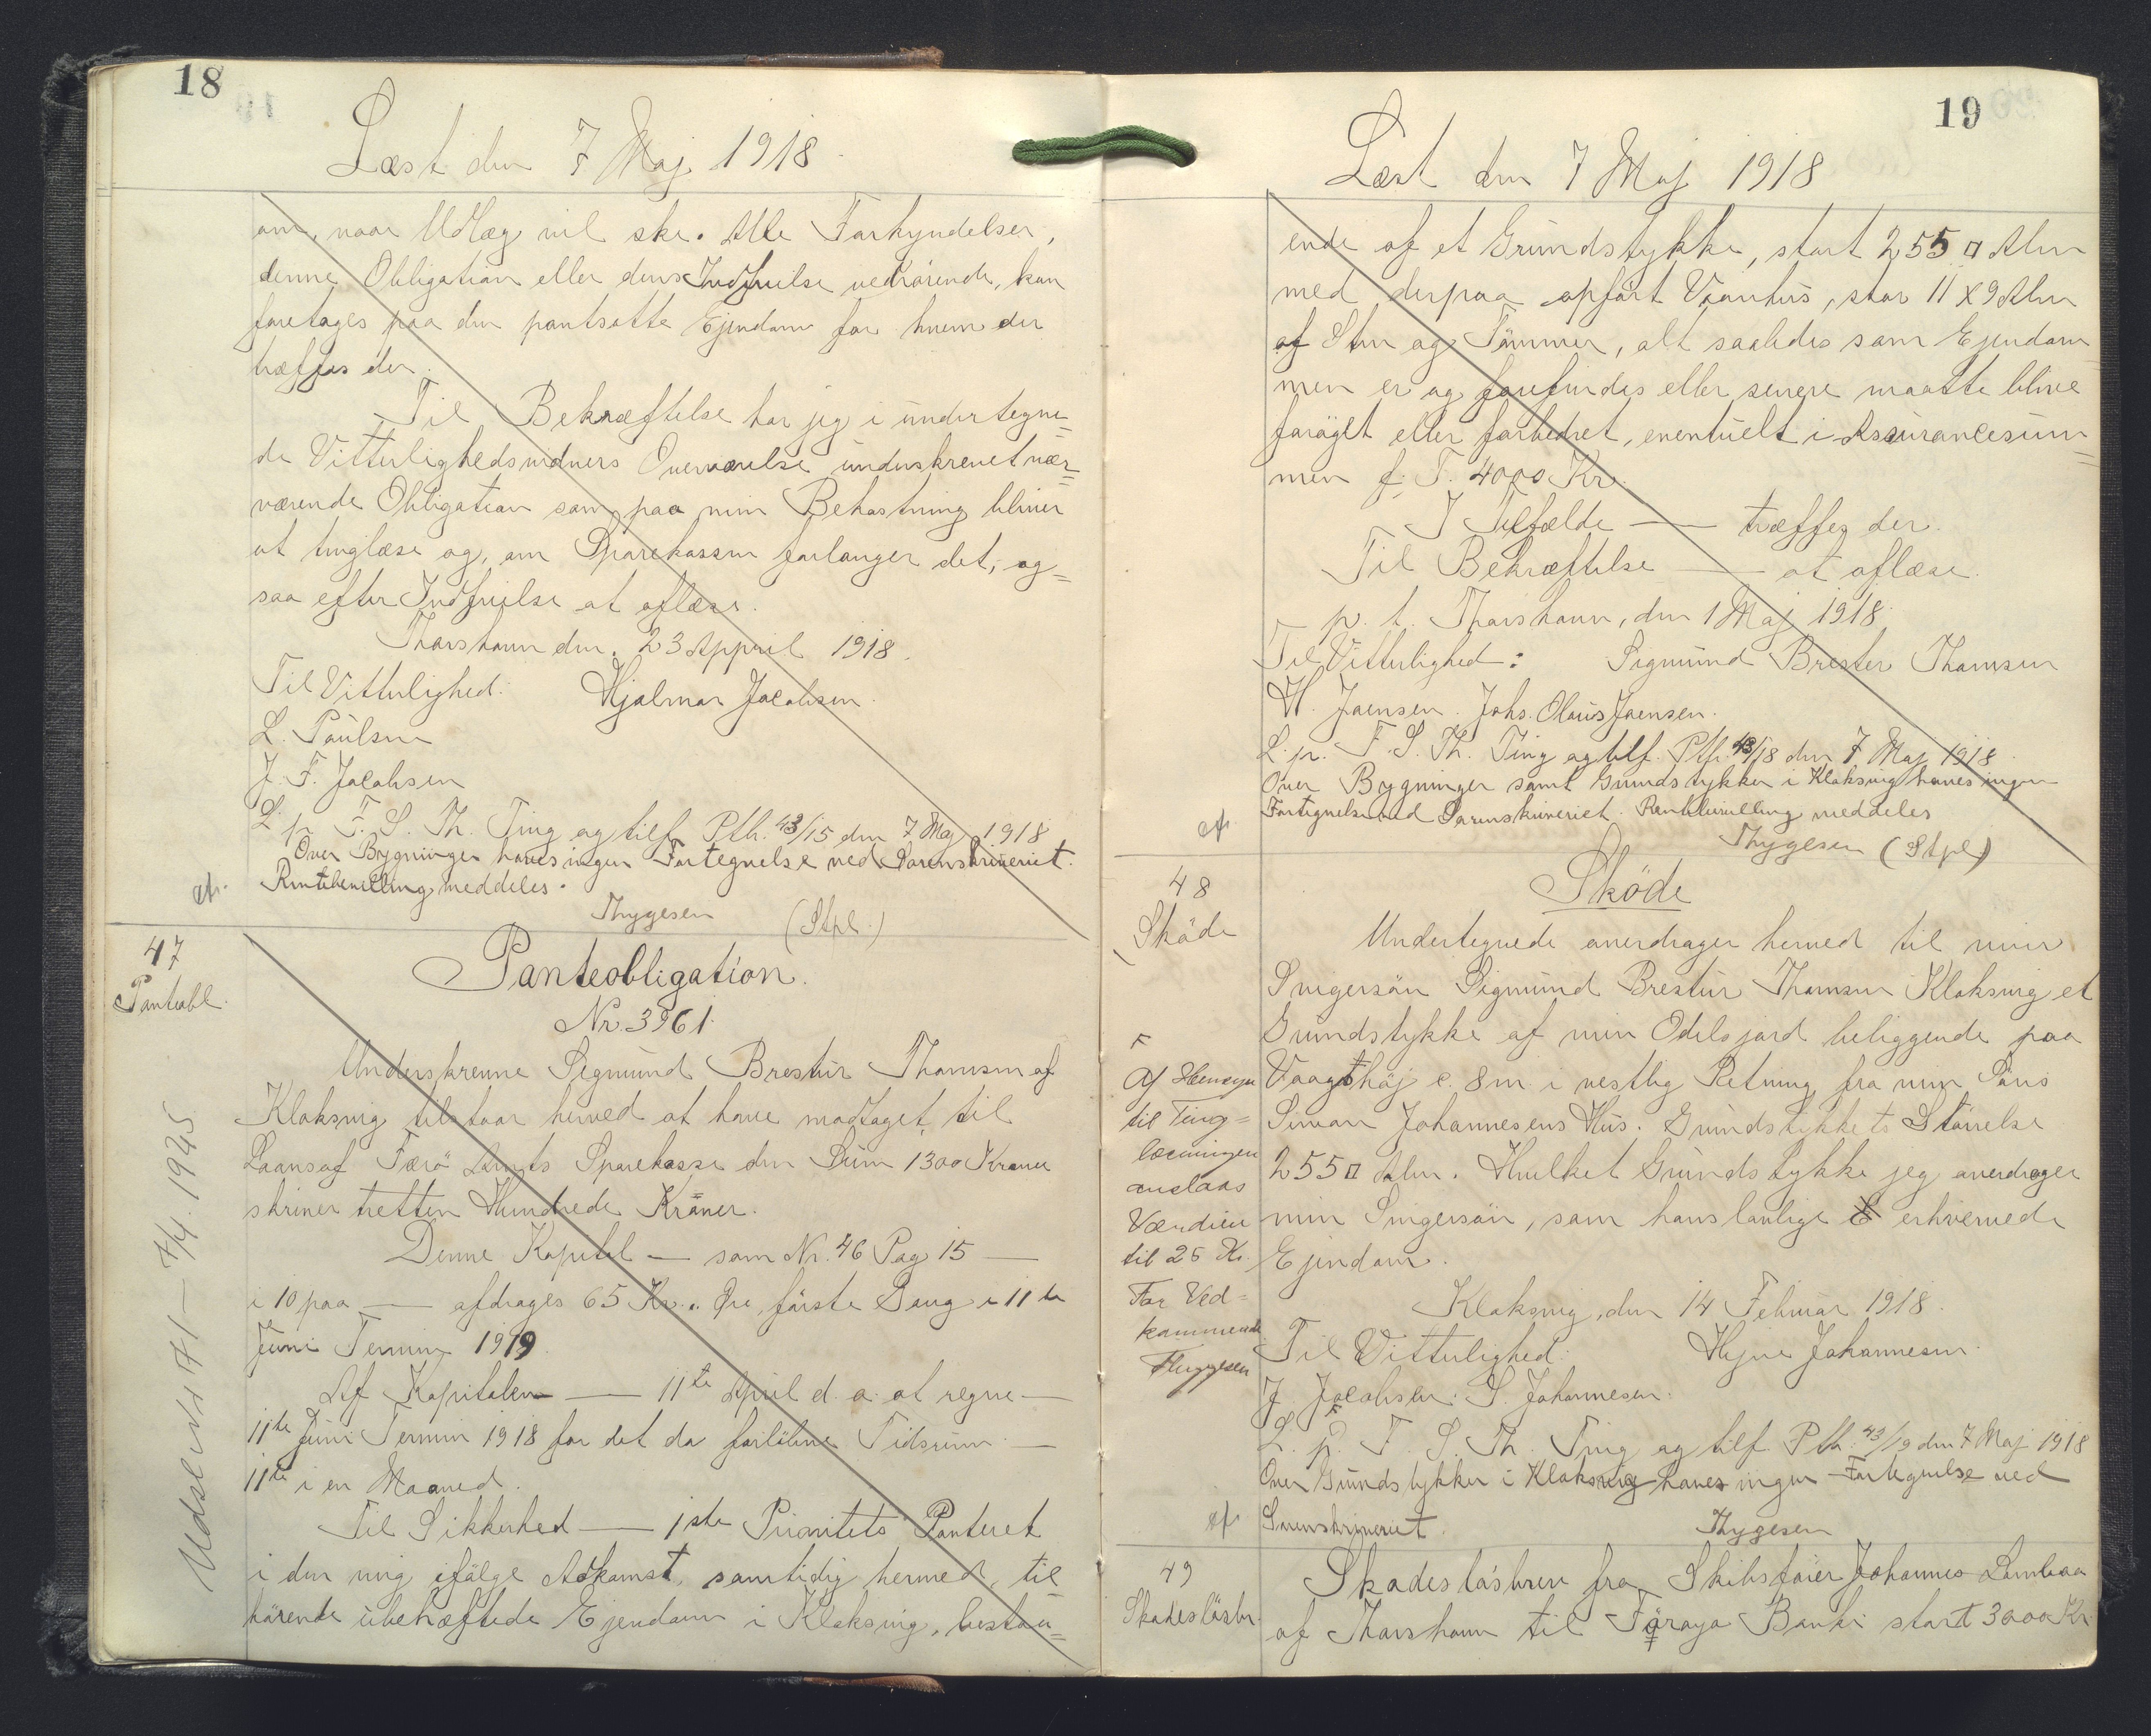 18
Læst den 7 Maj 1918.
om, naar Udlæg vil ske. Alle Forkyndelser,
denne Obligation eller dens Indfrielse vedrörende, kan
foretages paa den pantsatte Ejendom for hvem der
træffes der.
Til Bekræftelse har jeg i undertegne=
de Vitterlighedsvidners Overværelse underskrevet nær=
værende Obligation som paa min Bekostning bliver
at tinglæse og, om Sparekassen forlanger det, og=
saa efter Indfrielse at aflæse.
Thorshavn den. 23 Appril 1918.
Til Vitterlighed: Hjalmar Jacobsen.
L. Poulsen
J. F. Jacobsen
L. p. F. S. Th. Ting og tilf. Ptb. 43/15 den 7 Maj 1918
Over Bygninger haves ingen Fortegnelse ved Sorenskriveriet.
Rentebevilling meddeles.
Thygesen (Stpl.)
cf.
47
Panteobl.
Panteobligation.
Nr. 3961.
Underskrevne Sigmund Brestir Thomsen af
Klaksvig tilstaar herved at have modtaget til
Laans af Færö Amts Sparekasse den Sum 1300 Kroner
skriver tretten Hundrede Kröner.
Denne Kapital — som Nr. 46 Pag 15 —
i 10 paa — afdrages 65 Kr. Öre förste Gang i 11te
Juni Termin 1919
Af Kapitalen — 11te April d. a. at regne —
11te Juni Termin 1918 for det da forlöbne Tidsrum. —
11te i en Maaned.
Til Sikkerhed — 1ste Prioritets Panteret
i den mig ifölge Adkomst, samtidig hermed, til
hörende ubehæftede Ejendom i Klaksvig, bestaa=
Udslettet — 7/4. 1925
19
Læst den 7 Maj 1918
ende af et Grundstykke, stort 255 □ Alen
med derpaa opfört Vaanhus, stor 11 x 9 Alen
af Sten og Tömmer, alt saaledes som Ejendom=
men er og forefindes eller senere maatte blive
foröget eller forbedret, eventuelt i Assurancesum=
men f. T. 4000 Kr.
I Tilfælde — træffes der.
Til Bekræftelse — at aflæse.
p. t. Thorshavn, den 1 Maj 1918.
Til Vitterlighed: Sigmund Brestir Thomsen
H. Joensen. Johs. Olaus Joensen.
L. p. F. S. Th. Ting og tilf. Ptb. 43/18 den 7 Maj 1918
Over Bygninger samt Grundstykker i Klaksvig haves ingen
Fortegnelse ved Sorenskriveriet. Rentebevilling meddeles
Thygesen (Stpl)
cf.
48
Sköde
Sköde
Undertegnede overdrager herved til min
Svigersön Sigmund Brestur Thomsen Klaksvig et
Grundstykke af min Odelsjord beliggende paa
Vaagshöj c. 8 m i vestlig Retning fra min Söns
Simon Johannesens Hus. Grundstykkets Störrelse
255 □ Alen. Hvilket Grundstykke jeg overdrager
min Svigersön, som hans lovlige erhvervede
Ejendom.
Klaksvig, den 14 Februar 1918.
Til Vitterlighed: Hejne Johannesen.
J. Jacobsen. S. Johannesen.
L. p. F. S. Th. Ting og tilf. Ptb. 43/19 den 7 Maj 1918
Over Grundstykker i Klaksvig haves ingen Fortegnelse ved
Sorenskriveriet. Thygesen
cf.
Af Hensyn
til Ting=
læsningen
anslaas
Værdien
til 25 Kr.
For Ved=
kommende
Thygesen
49
Skadeslösbr.
Skadeslösbrev fra Skibsförer Johannes Lambaa
af Thorshavn til Föroya Banki stort 3000 Kr.